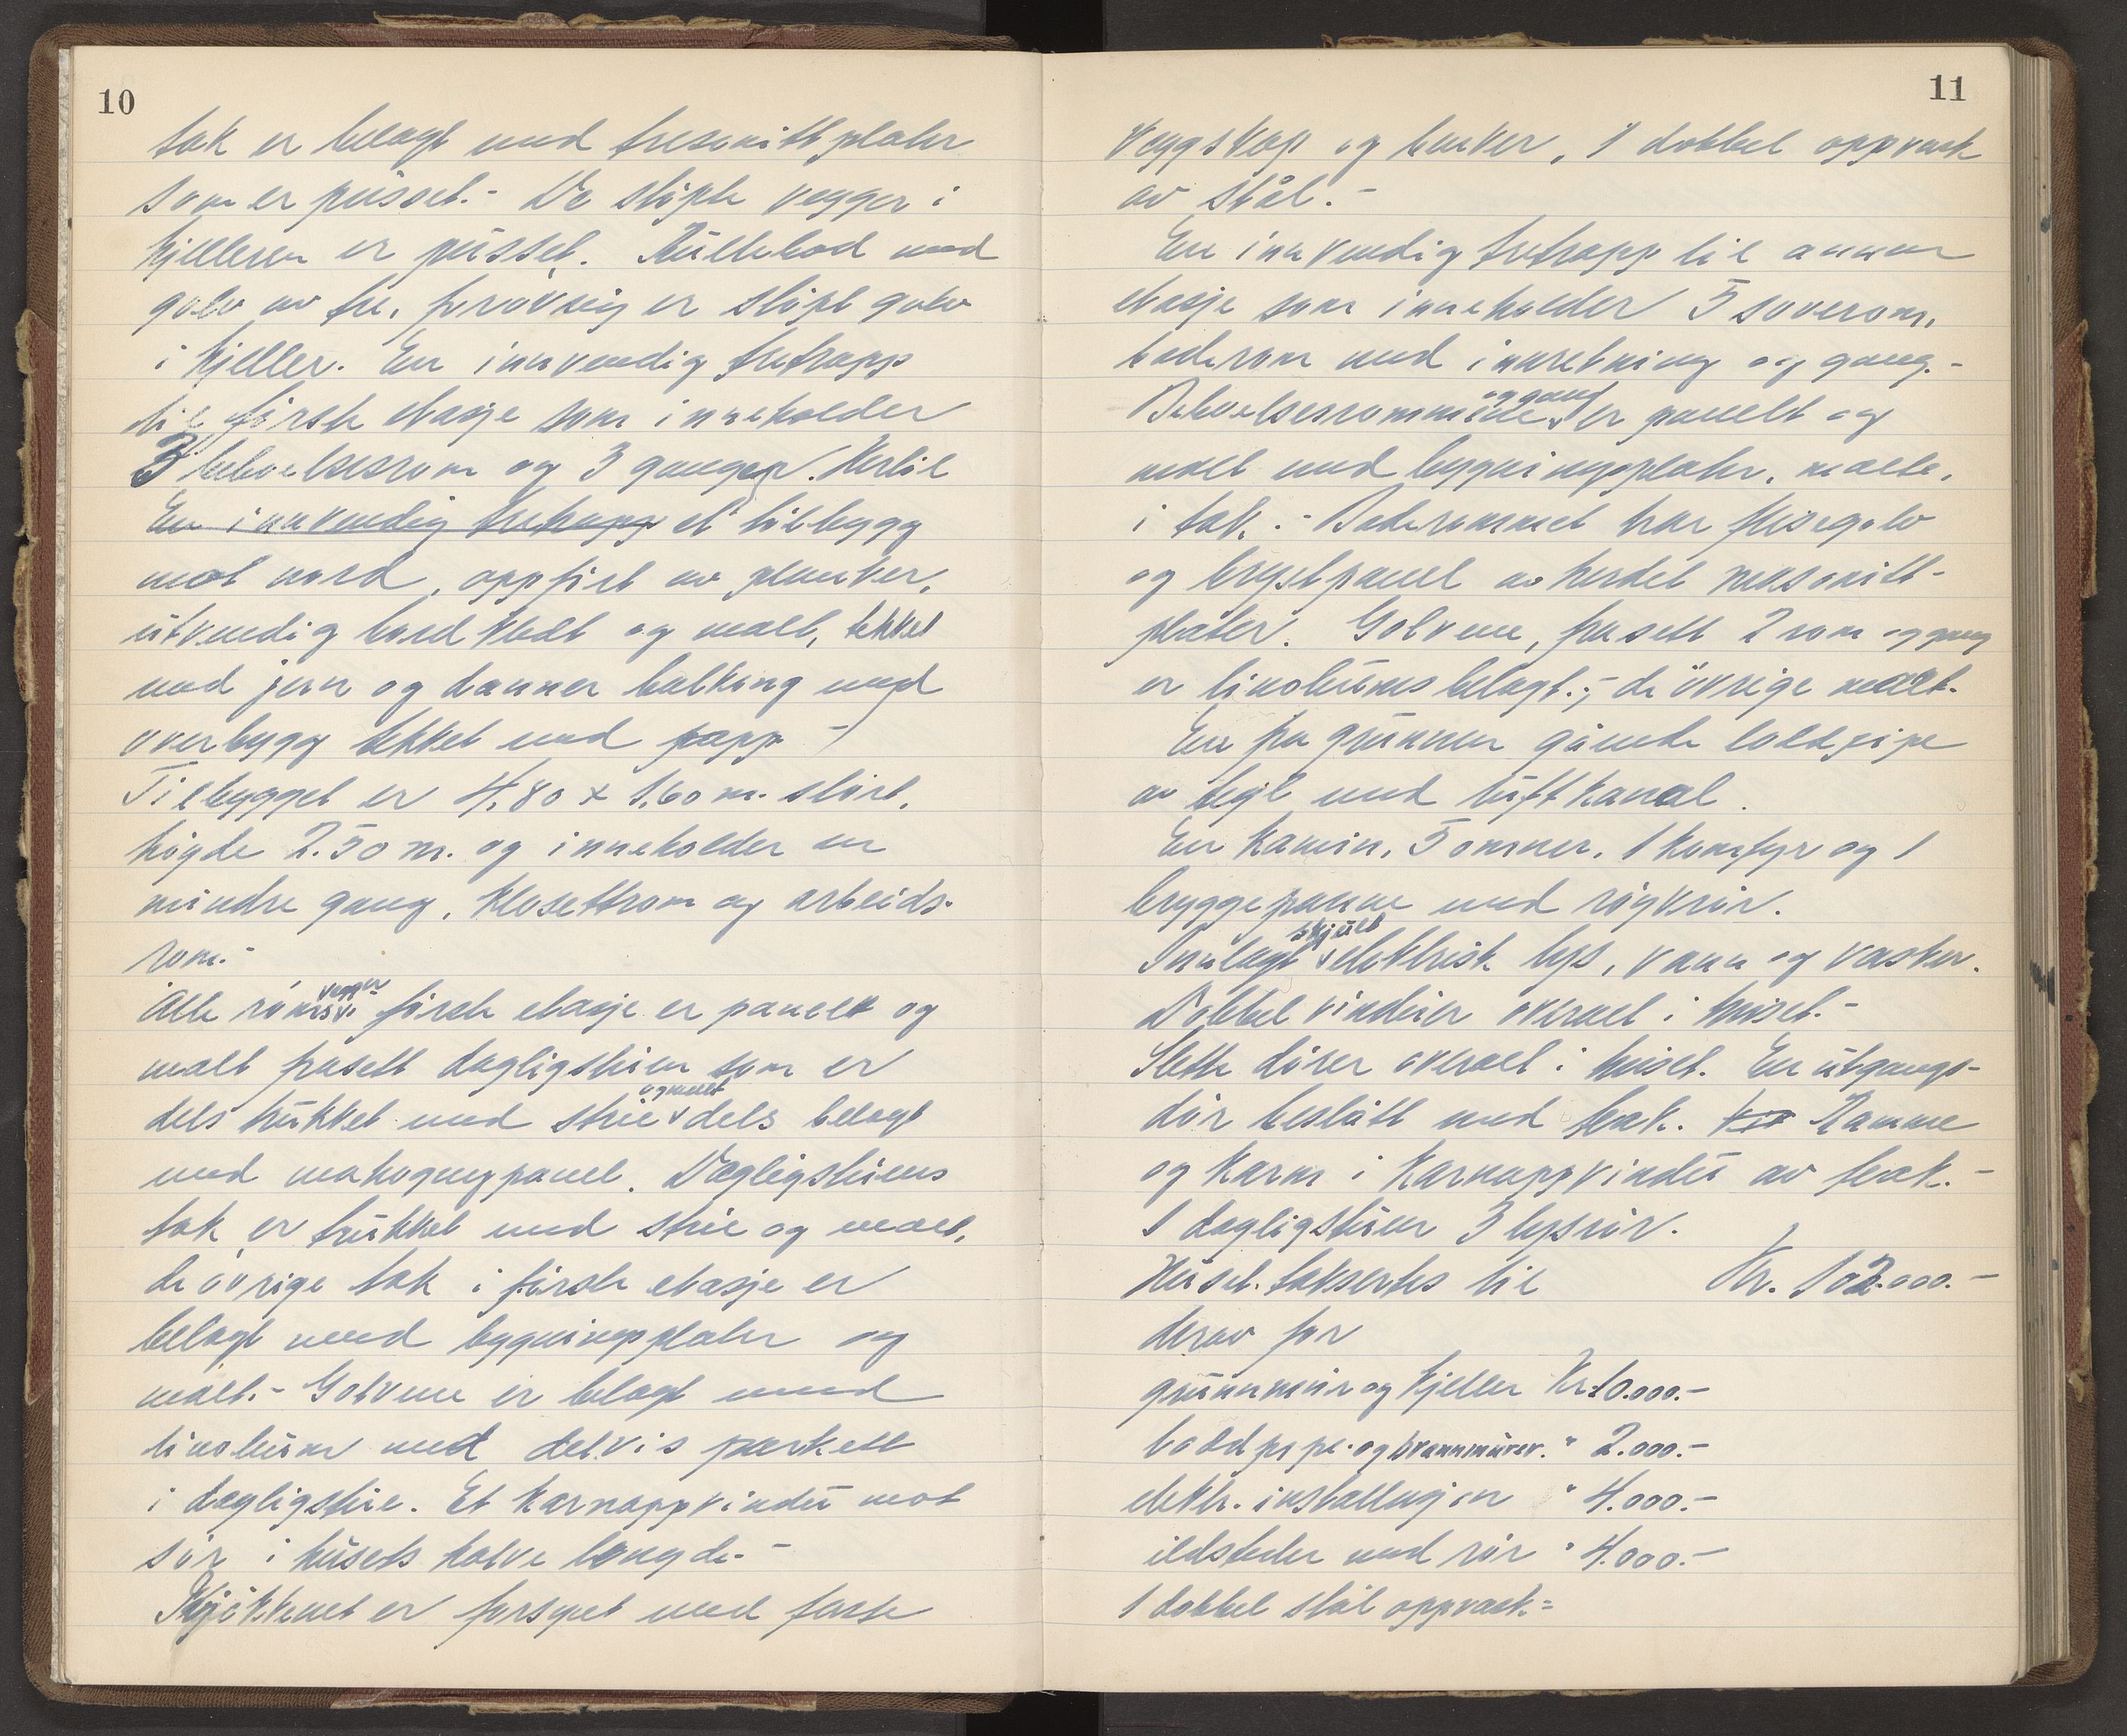 10
tak er belagt med tresonittplater
som er pusset.- De støpte vegger i
kjelleren er pusset. Rullebod med
golv av tre, forøvrig er støpt golv
i kjeller. En innvendig tretrapp
til første etasje som inneholder
3 beboelsesrom og 3 ganger. Hertil
En innvendig tretrapp et tilbygg
mot nord, oppført av planker,
utvendig bordkledt og malt, tekket
med jern og danner balkong med
overbygg tekket med papp -)
Tilbygget er 4,80 x 1,60 m. stort,
høgde 2.50 m. og inneholder en
mindre gang, klosettrom og arbeids-
rom.-
vegger
Alle roms i første etasje er panelt og
malt frasett dagligstuen som er
og malt
dels trukket med strie dels belagt
med mahognypanel. Dagligstuens
tak er trukket med strie og malt,
de øvrige tak i første etasje er
belagt med bygningsplater og
malt.- Golvene er belagt med
linoleum med delvis parkett
i dagligstue. Et karnappvindu mot
sør i husets halve lengde.-
Kjøkkenet er forsynt med faste
11
veggskap og benker, 1 dobbel oppvask
av stål.-
En innvendig tretrapp til annen
etasje som inneholder 5 soverom,
baderom med innretning og gang.-
og gang
Beboelsesrommene er panelt og
malt med bygningsplater, malte,
i tak.- Baderommet har flisegolv
og brystpanel av herdet masonitt-
plater. Golvene, frasett 2 rom og gang
er linoleumsbelagt.-, de øvrige malt.
En fra grunnen gående loddpipe
av tegl med luftkanal.
En kamin, 5 omner, 1 komfyr og 1
bryggepanne med røykrør.
skjult
Innlagt elektrisk lys, vann og vasker.
Dobbel vinduer overalt i huset.-
Slette dører overalt i huset. En utgangs-
dør beslått med teak. Ramme
og karm i karnappvindu av teak.-
I dagligstuen 3 lysrør.
Huset takseres til Kr. 102.000.-
derav for
grunnmur og kjeller Kr. 10.000.-
loddpipe og brannmurer. " 2.000.-
elektr. installasjon " 4.000.-
ildsteder med rør " 4.000.-
1 dobbel stål oppvask=